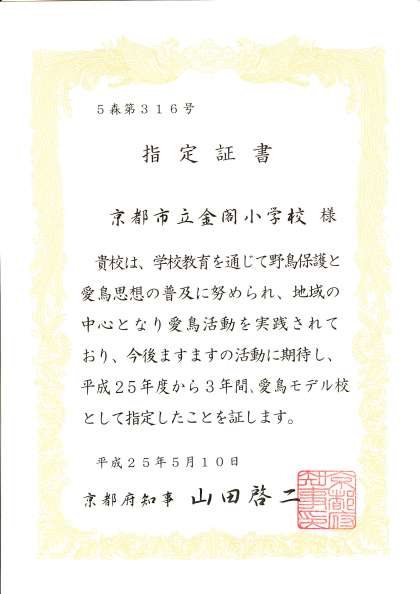 ５森第３１６号
指定証書
京都市立金閣小学校 様
貴校は、学校教育を通じて野鳥保護と
愛鳥思想の普及に努められ、地域の
中心となり愛鳥活動を実践されて
おり、今後ますますの活動に期待し、
平成２５年度から３年間、愛鳥モデル校
として指定したことを証します。
平成２５年５月１０日
京都府知事 山田啓二
京都府知事印